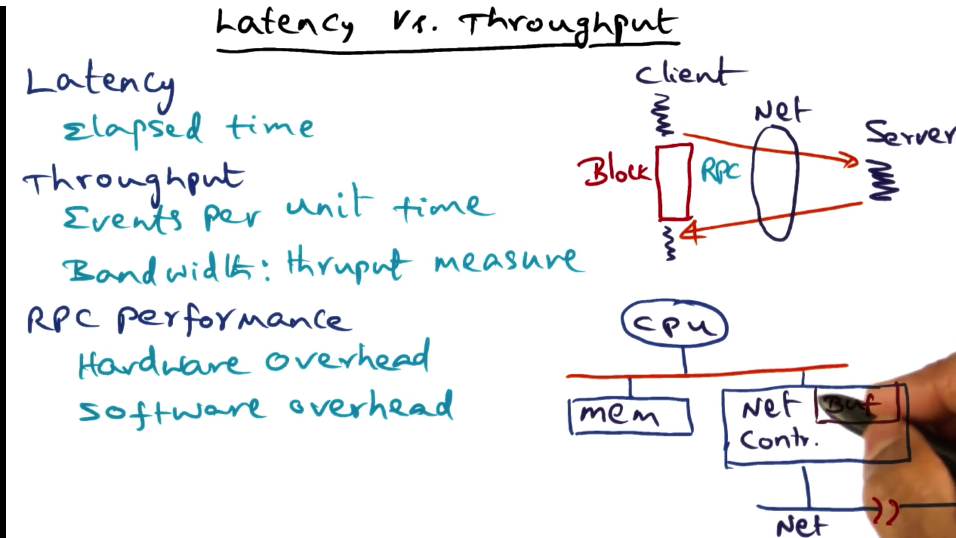 Latency Vs. Throughput
Latency
Elapsed time
Throughput
Events per unit time
Bandwidth: thruput measure
RPC performance
Hardware overhead
Software overhead
Client
Net
Server
Block
RPC
CPU
mem
Net Buf
Contr.
Net